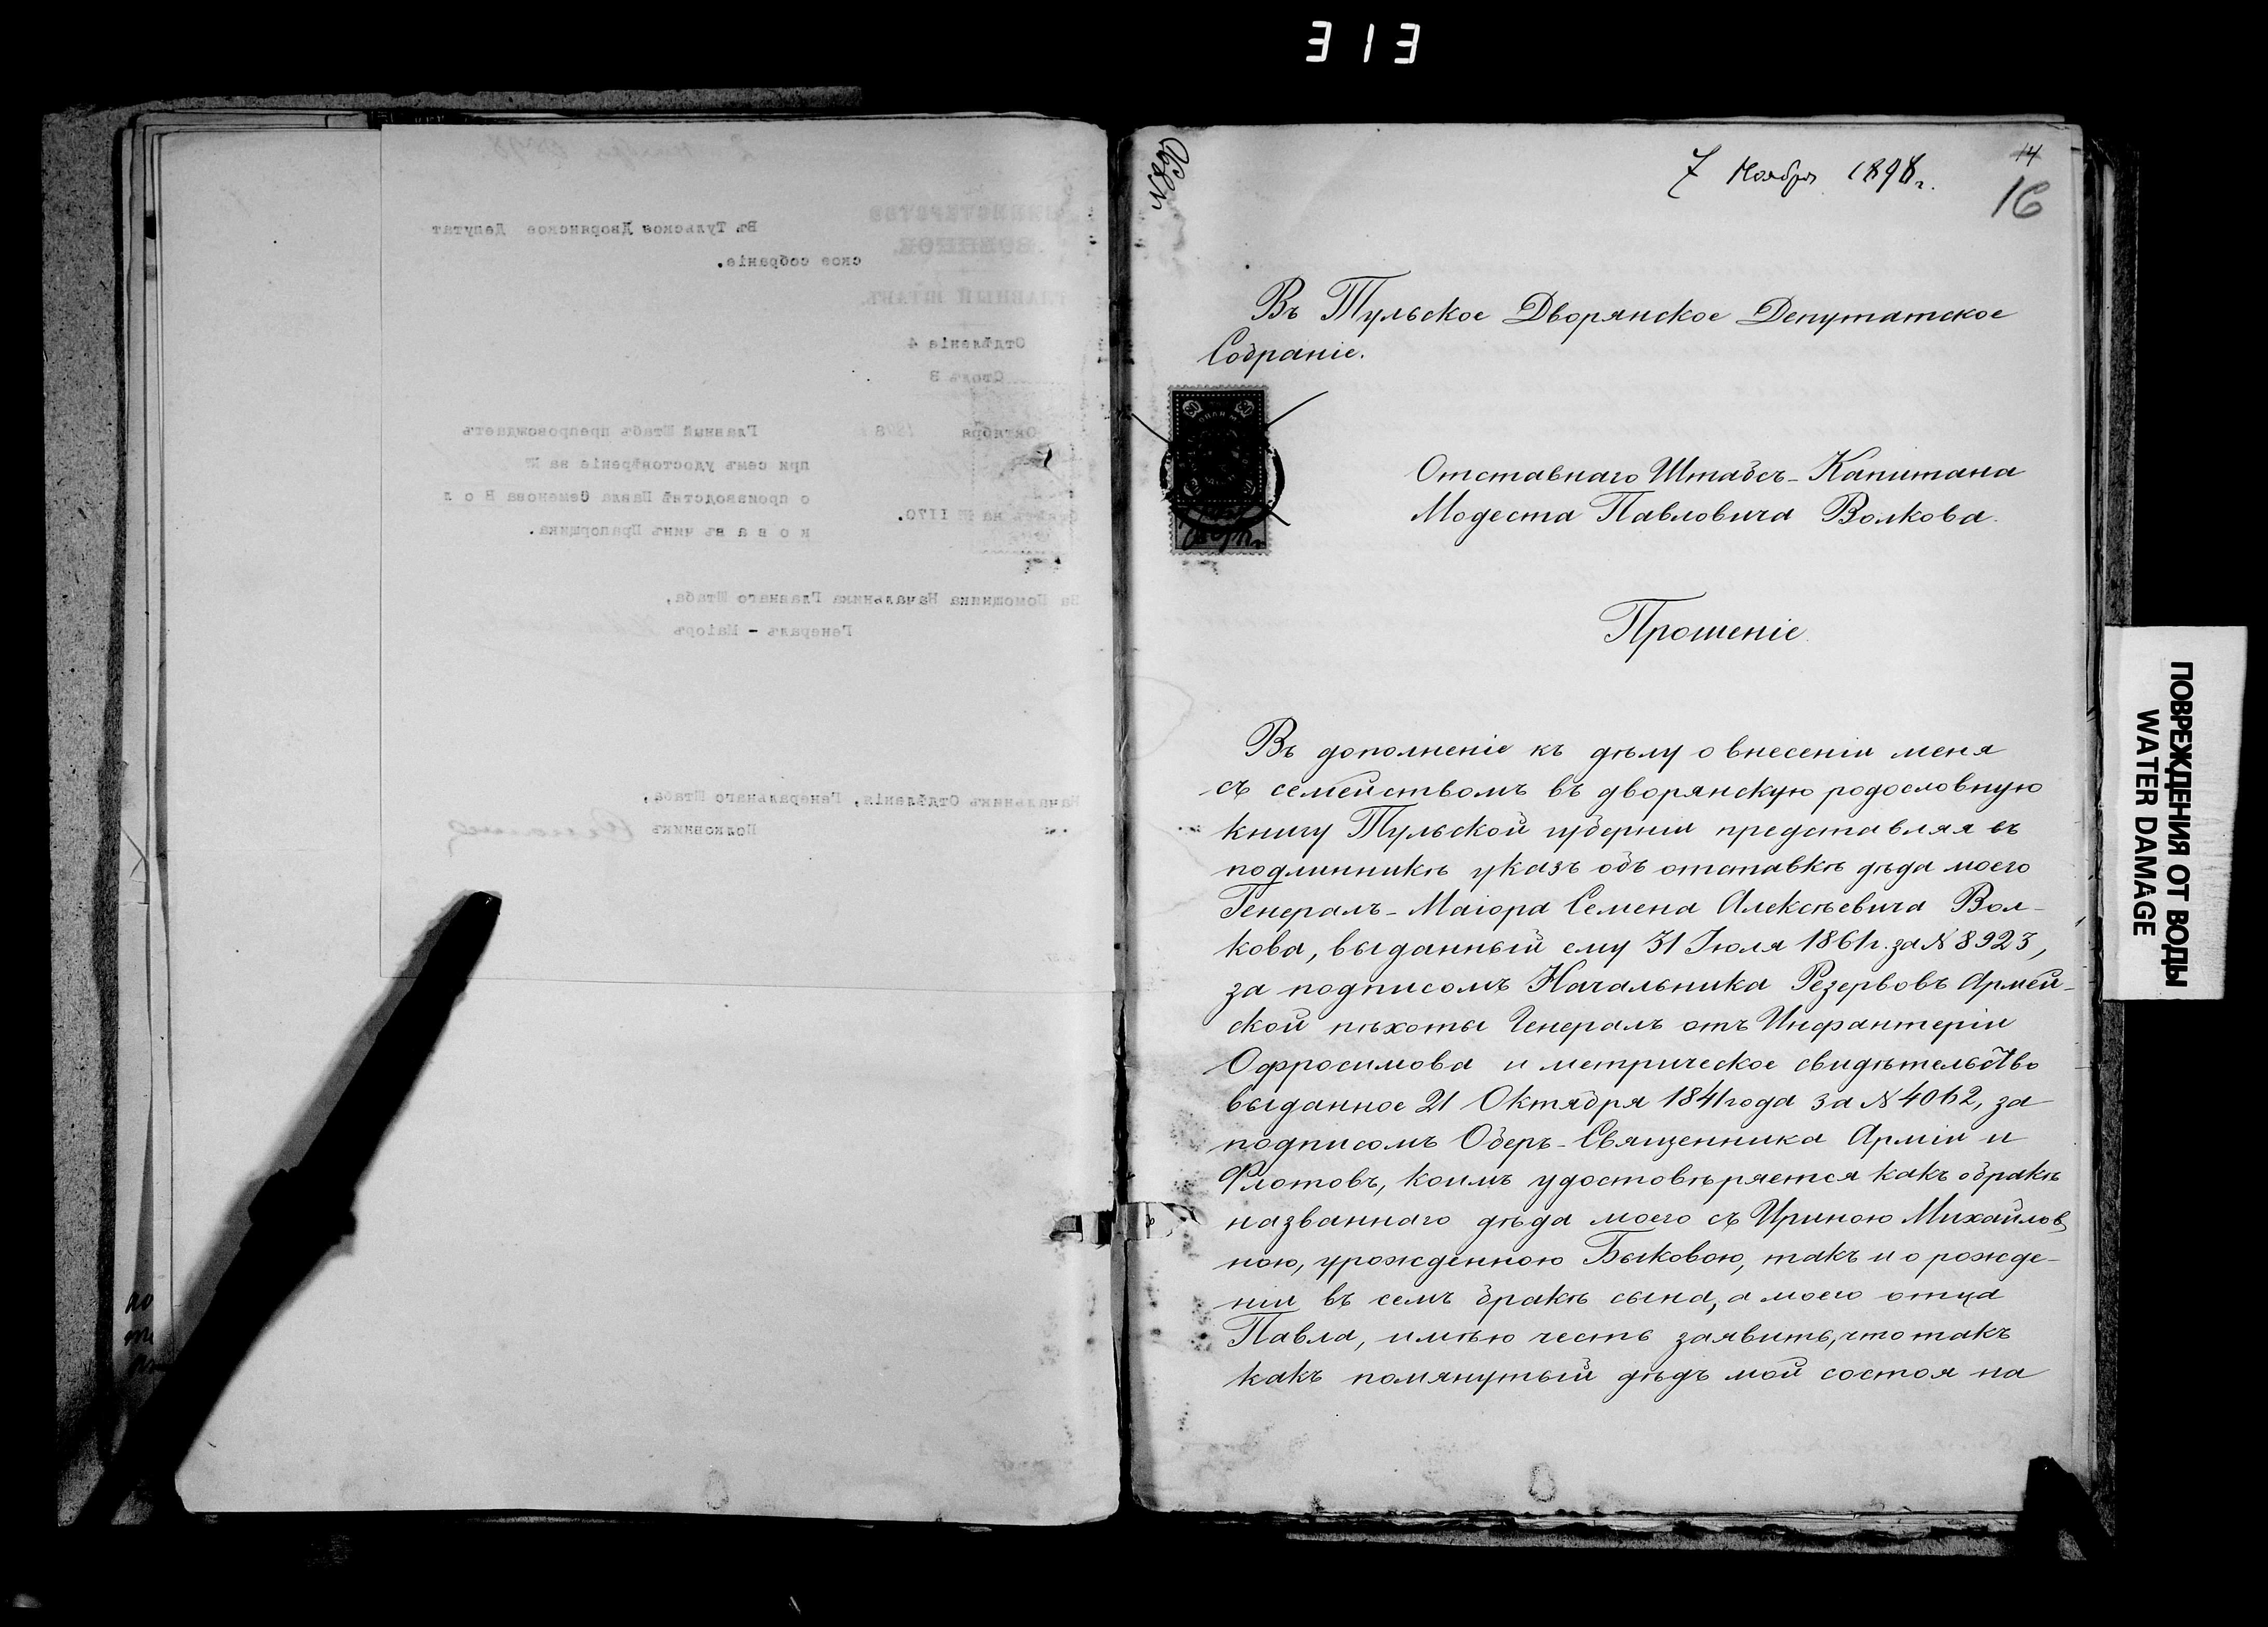 313
7 Ноября 1898 г.
14
16
№ 890
Въ Тульское Дворянское Депутатское
Собраніе.
Отставнаго Штабсъ-Капитана
Модеста Павловича Волкова.
Прошеніе.
Въ дополненіе къ дѣлу о внесеніи меня
съ семействомъ въ дворянскую родословную
книгу Тульской губерніи представляя въ
подлинникѣ указъ объ отставкѣ дѣда моего
Генералъ-Маіора Семена Алексѣевича Вол-
кова, выданный ему 31 Іюля 1861 г. за № 8923,
за подписомъ Начальника Резервовъ Армей-
ской пѣхоты Генералъ отъ Инфантеріи
Офросимова и метрическое свидѣтельство
выданное 21 Октября 1841 года за № 4062, за
подписомъ Оберъ-Священника Арміи и
Флотовъ, коимъ удостовѣряется какъ о бракѣ
названнаго дѣда моего съ Ириною Михайлов
ною, урожденною Быковою, такъ и о рожде-
ніи въ семъ бракѣ сына, а моего отца
Павла, имѣю честь заявить, что такъ
какъ помянутый дѣдъ мой состоя на
ПОВРЕЖДЕНИЯ ОТ ВОДЫ
WATER DAMAGE
Въ Тульское Дворянское Депутат
ское собраніе.
МИНИСТЕРСТВО
ВОЕННОЕ.
ГЛАВНЫЙ ШТАБЪ.
Отдѣленіе 4
Столъ 3
Октября 1898
Главный Штабъ препровождаетъ
при семъ удостовѣреніе за №
о производствѣ Павла Семенова В о л
к о в а въ чинъ Прапорщика.
на № 1170.
За Помощника Начальника Главнаго Штаба,
Генералъ - Маіоръ
Начальникъ Отдѣленія, Генеральнаго Штаба,
Полковникъ